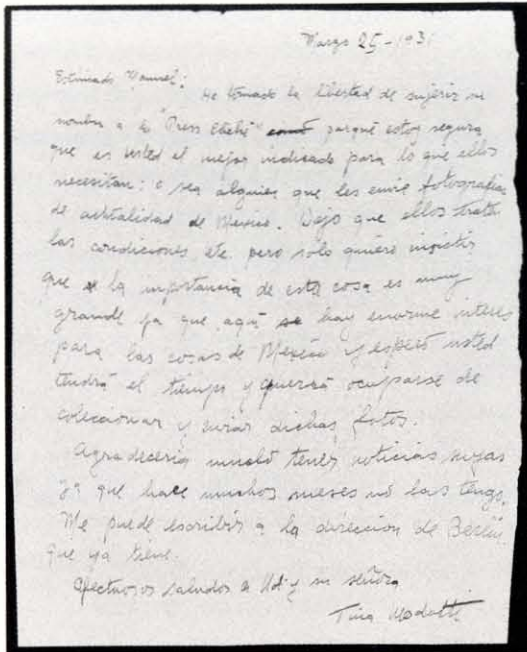 Marzo 25-1931
Estimado Manuel:
He tomado la libertad de sujerir su
nombre a la "Press Cliché" porqué estoy segura
que es usted el mejor indicado para lo que ellos
necesitan: o sea alguien que les envie fotografias
de actualidad de Mexico. Dejo que ellos traten
las condiciones etc. pero sólo quiero insistir
que la importancia de esta cosa es muy
grande ya que aqui hay enorme interes
para las cosas de Mexico y espero usted
tendrá el tiempo y querrá ocuparse de
coleccionar y enviar dichas fotos.
Agradeceria mucho tener noticias suyas
ya que hace muchos meses no las tengo.
Me puede escribir a la direccion de Berlin
que ya tiene.
Afectuosos saludos a Ud. y su señora
Tina Modotti